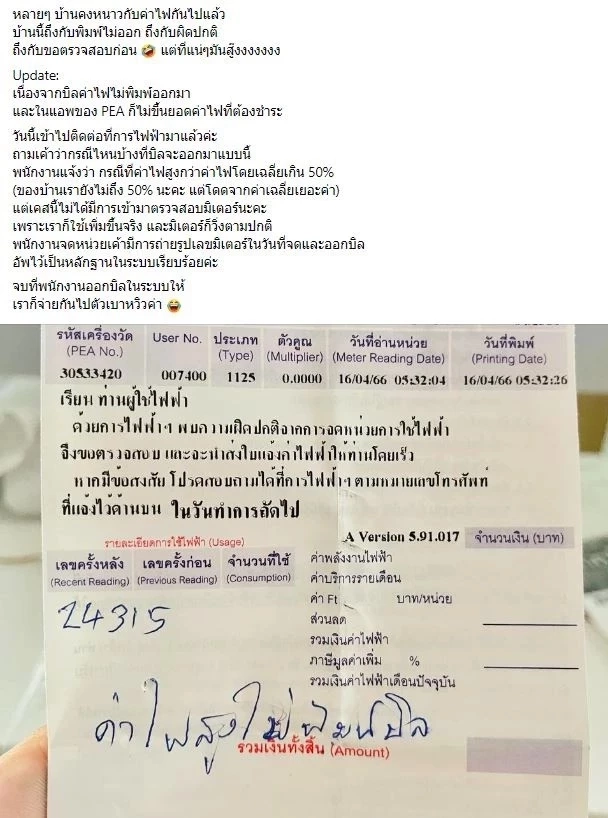 หลายๆ บ้านคงหนาวกับค่าไฟกันไปแล้ว
บ้านนี้ถึงกับพิมพ์ไม่ออก ถึงกับผิดปกติ
ถึงกับขอตรวจสอบก่อน 🤣 แต่ที่แน่ๆมันสู๊งงงงงงง
Update:
เนื่องจากบิลค่าไฟไม่พิมพ์ออกมา
และในแอพของ PEA ก็ไม่ขึ้นยอดค่าไฟที่ต้องชำระ
วันนี้เข้าไปติดต่อที่การไฟฟ้ามาแล้วค่ะ
ถามเค้าว่ากรณีไหนบ้างที่บิลจะออกมาแบบนี้
พนักงานแจ้งว่า กรณีที่ค่าไฟสูงกว่าค่าไฟโดยเฉลี่ยเกิน 50%
(ของบ้านเรายังไม่ถึง 50% นะคะ แต่โดดจากค่าเฉลี่ยเยอะค่า)
แต่เคสนี้ไม่ได้มีการเข้ามาตรวจสอบมิเตอร์นะคะ
เพราะเราก็ใช้เพิ่มขึ้นจริง และมิเตอร์ก็วิ่งตามปกติ
พนักงานจดหน่วยเค้ามีการถ่ายรูปเลขมิเตอร์ในวันที่จดและออกบิล
อัพไว้เป็นหลักฐานในระบบเรียบร้อยค่ะ
จบที่พนักงานออกบิลในระบบให้
เราก็จ่ายกันไปตัวเบาหวิวค่า 😅
รหัสเครื่องวัด User No. ประเภท ตัวคูณ วันที่อ่านหน่วย วันที่พิมพ์
(PEA No.) (Type) (Multiplier) (Meter Reading Date) (Printing Date)
30533420 007400 1125 0.0000 16/04/66 05:32:04 16/04/66 05:32:26
เรียน ท่านผู้ใช้ไฟฟ้า
ด้วยการไฟฟ้าฯ พบความผิดปกติจากการจดหน่วยการใช้ไฟฟ้า
จึงขอตรวจสอบ และจะนำส่งใบแจ้งค่าไฟฟ้าให้ท่านโดยเร็ว
หากมีข้อสงสัย โปรดสอบถามได้ที่การไฟฟ้าฯ ตามหมายเลขโทรศัพท์
ที่แจ้งไว้ด้านบน ในวันทำการถัดไป
A Version 5.91.017 จำนวนเงิน (บาท)
รายละเอียดการใช้ไฟฟ้า (Usage)
เลขครั้งหลัง เลขครั้งก่อน จำนวนที่ใช้
(Recent Reading) (Previous Reading) (Consumption)
24315
ค่าพลังงานไฟฟ้า
ค่าบริการรายเดือน
ค่า Ft บาท/หน่วย
ส่วนลด
รวมเงินค่าไฟฟ้า
ภาษีมูลค่าเพิ่ม %
รวมเงินค่าไฟฟ้าเดือนปัจจุบัน
ค่าไฟสูงไม่พิมพ์บิล
รวมเงินทั้งสิ้น (Amount)